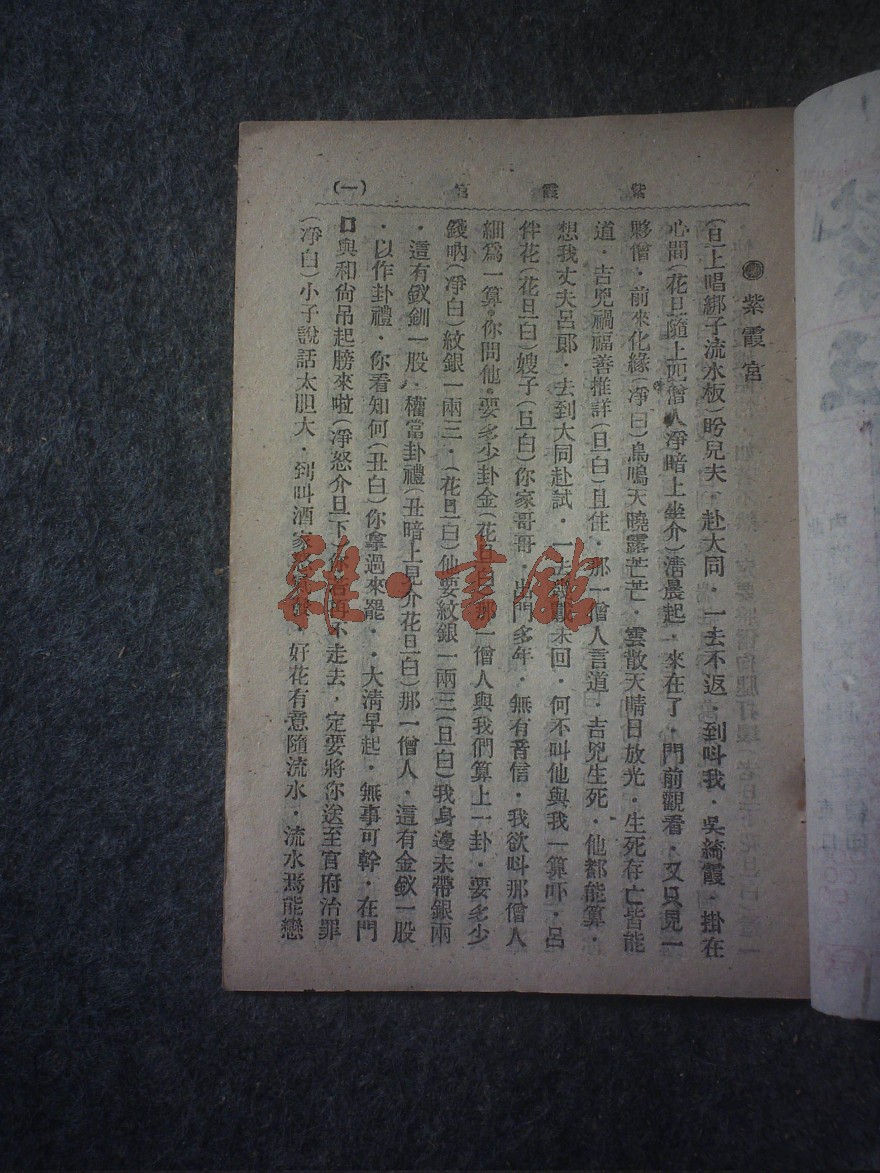 紫霞宮
(一)
紫霞宮
(旦上唱綁子流水板)盼兒夫．赴大同．一去不返．到叫我．吳綺霞．掛在
心間(花旦隨上 僧人淨暗上坐介)清晨起．來在了．門前觀看．又只見一
夥僧．前來化緣(淨白)鳥鳴天曉露芒芒．雲散天晴日放光．生死存亡皆能
道．吉兇禍福善推詳(旦白)且住．那一僧人言道．吉兇生死．他都能算．
想我丈夫呂郎．去到大同赴試．一去 載未回．何不叫他與我一算吓．呂
伴花(花旦白)嫂子(旦白)你家哥哥．出門多年．無有音信．我欲叫那僧人
細爲一算．你問他．要多少卦金(花旦白)那一僧人與我們算上一卦．要多少
錢吶(淨白)紋銀一兩三．(花旦白)他要紋銀一兩三(旦白)我身邊未帶銀兩
．這有釵釧一股．權當卦禮(丑暗上見介花旦白)那一僧人．這有金釵一股
．以作卦禮．你看如何(丑白)你拿過來罷．．大清早起．無事可幹．在門
口與和尙吊起膀來啦(淨怒介旦下)你若再不走去．定要將你送至官府治罪
(淨白)小子說話太胆大．到叫酒家 ．好花有意隨流水．流水焉能戀
雜·書館